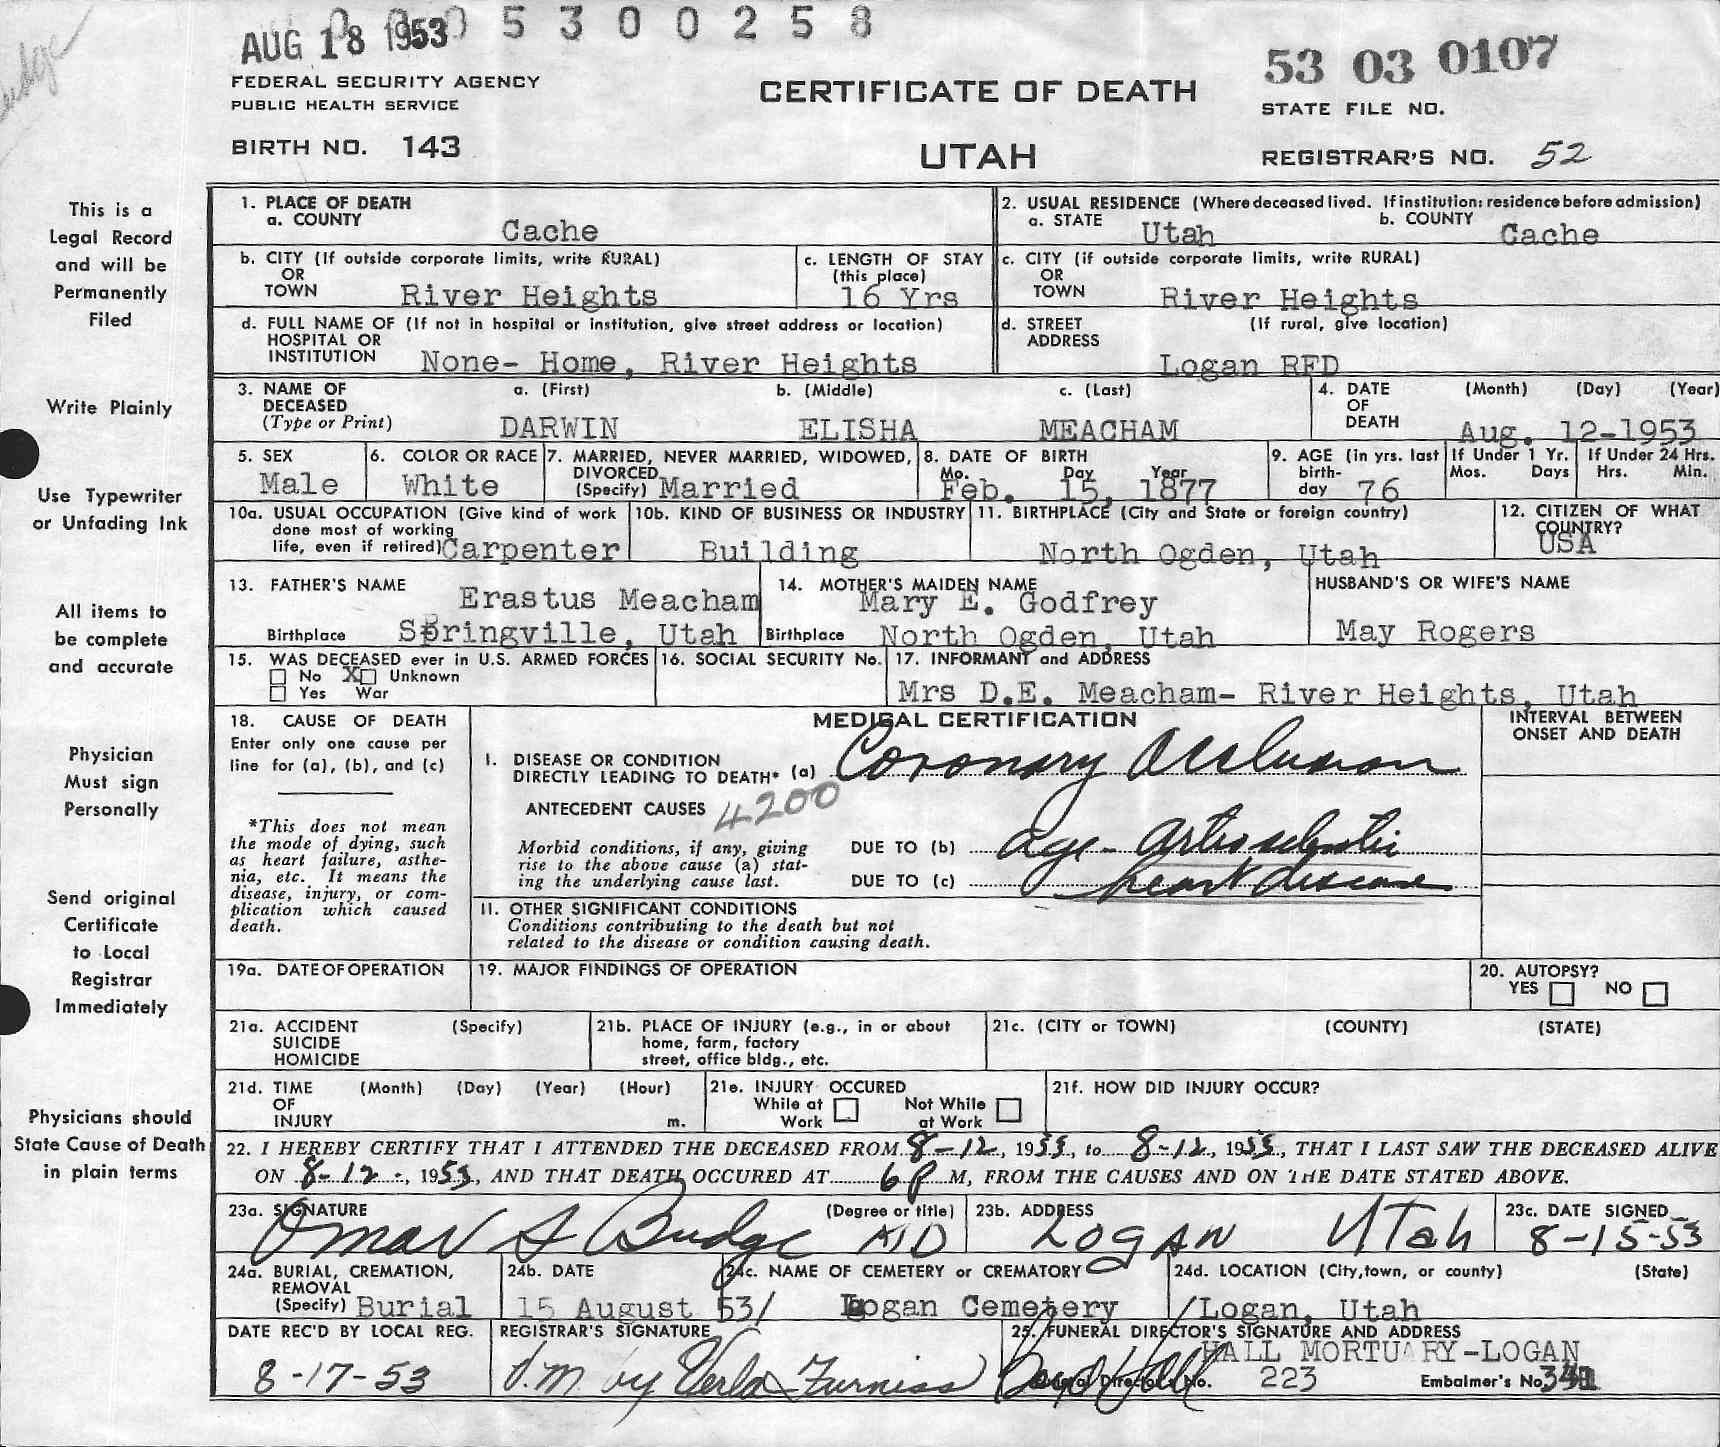 AUG 18 1953
0 0 0 5 3 0 0 2 5 8
53 03 0107
FEDERAL SECURITY AGENCY
PUBLIC HEALTH SERVICE
CERTIFICATE OF DEATH
STATE FILE NO.
BIRTH NO. 143
UTAH
REGISTRAR'S NO. 52
This is a
Legal Record
and will be
Permanently
Filed
Write Plainly
Use Typewriter
or Unfading Ink
All items to
be complete
and accurate
Physician
Must sign
Personally
Send original
Certificate
to Local
Registrar
Immediately
Physicians should
State Cause of Death
in plain terms
1. PLACE OF DEATH
a. COUNTY Cache
2. USUAL RESIDENCE (Where deceased lived. If institution: residence before admission)
a. STATE Utah b. COUNTY Cache
b. CITY (If outside corporate limits, write RURAL)
OR
TOWN River Heights
c. LENGTH OF STAY
(this place)
16 Yrs
c. CITY (if outside corporate limits, write RURAL)
OR
TOWN River Heights
d. FULL NAME OF (If not in hospital or institution, give street address or location)
HOSPITAL OR
INSTITUTION None- Home, River Heights
d. STREET (If rural, give location)
ADDRESS
Logan RFD
3. NAME OF a. (First) b. (Middle) c. (Last)
DECEASED
(Type or Print) DARWIN ELISHA MEACHAM
4. DATE (Month) (Day) (Year)
OF
DEATH Aug. 12-1953
5. SEX
Male
6. COLOR OR RACE
White
7. MARRIED, NEVER MARRIED, WIDOWED,
DIVORCED
(Specify) Married
8. DATE OF BIRTH
Mo. Day Year
Feb. 15, 1877
9. AGE (in yrs. last
birth-
day 76
If Under 1 Yr.
Mos. Days
If Under 24 Hrs.
Hrs. Min.
10a. USUAL OCCUPATION (Give kind of work
done most of working
life, even if retired) Carpenter
10b. KIND OF BUSINESS OR INDUSTRY
Building
11. BIRTHPLACE (City and State or foreign country)
North Ogden, Utah
12. CITIZEN OF WHAT
COUNTRY?
USA
13. FATHER'S NAME
Erastus Meacham
Birthplace Springville, Utah
14. MOTHER'S MAIDEN NAME
Mary E. Godfrey
Birthplace North Ogden, Utah
HUSBAND'S OR WIFE'S NAME
May Rogers
15. WAS DECEASED ever in U.S. ARMED FORCES
No X Unknown
Yes War
16. SOCIAL SECURITY No.
17. INFORMANT and ADDRESS
Mrs D.E. Meacham- River Heights, Utah
18. CAUSE OF DEATH
Enter only one cause per
line for (a), (b), and (c)
*This does not mean
the mode of dying, such
as heart failure, asthe-
nia, etc. It means the
disease, injury, or com-
plication which caused
death.
MEDICAL CERTIFICATION
INTERVAL BETWEEN
ONSET AND DEATH
I. DISEASE OR CONDITION
DIRECTLY LEADING TO DEATH* (a) Coronary Occlusion
ANTECEDENT CAUSES 4200
Morbid conditions, if any, giving
rise to the above cause (a) stat-
ing the underlying cause last.
DUE TO (b) age - arteriosclerotic
DUE TO (c) heart disease
II. OTHER SIGNIFICANT CONDITIONS
Conditions contributing to the death but not
related to the disease or condition causing death.
19a. DATE OF OPERATION
19. MAJOR FINDINGS OF OPERATION
20. AUTOPSY?
YES NO
21a. ACCIDENT (Specify)
SUICIDE
HOMICIDE
21b. PLACE OF INJURY (e.g., in or about
home, farm, factory
street, office bldg., etc.
21c. (CITY or TOWN) (COUNTY) (STATE)
21d. TIME (Month) (Day) (Year) (Hour)
OF
INJURY m.
21e. INJURY OCCURED
While at Work Not While at Work
21f. HOW DID INJURY OCCUR?
22. I HEREBY CERTIFY THAT I ATTENDED THE DECEASED FROM 8-12, 1953, to 8-12, 1953, THAT I LAST SAW THE DECEASED ALIVE
ON 8-12-, 1953, AND THAT DEATH OCCURED AT 6 P M, FROM THE CAUSES AND ON THE DATE STATED ABOVE.
23a. SIGNATURE (Degree or title)
Omar S Budge MD
23b. ADDRESS
LOGAN Utah
23c. DATE SIGNED
8-15-53
24a. BURIAL, CREMATION,
REMOVAL
(Specify) Burial
24b. DATE
15 August 53/
24c. NAME OF CEMETERY or CREMATORY
Logan Cemetery
24d. LOCATION (City, town, or county) (State)
/Logan, Utah
DATE REC'D BY LOCAL REG.
8-17-53
REGISTRAR'S SIGNATURE
by Verla Furniss
25. FUNERAL DIRECTOR'S SIGNATURE AND ADDRESS
HALL MORTUARY-LOGAN
Funeral Director's No. 223 Embalmer's No.